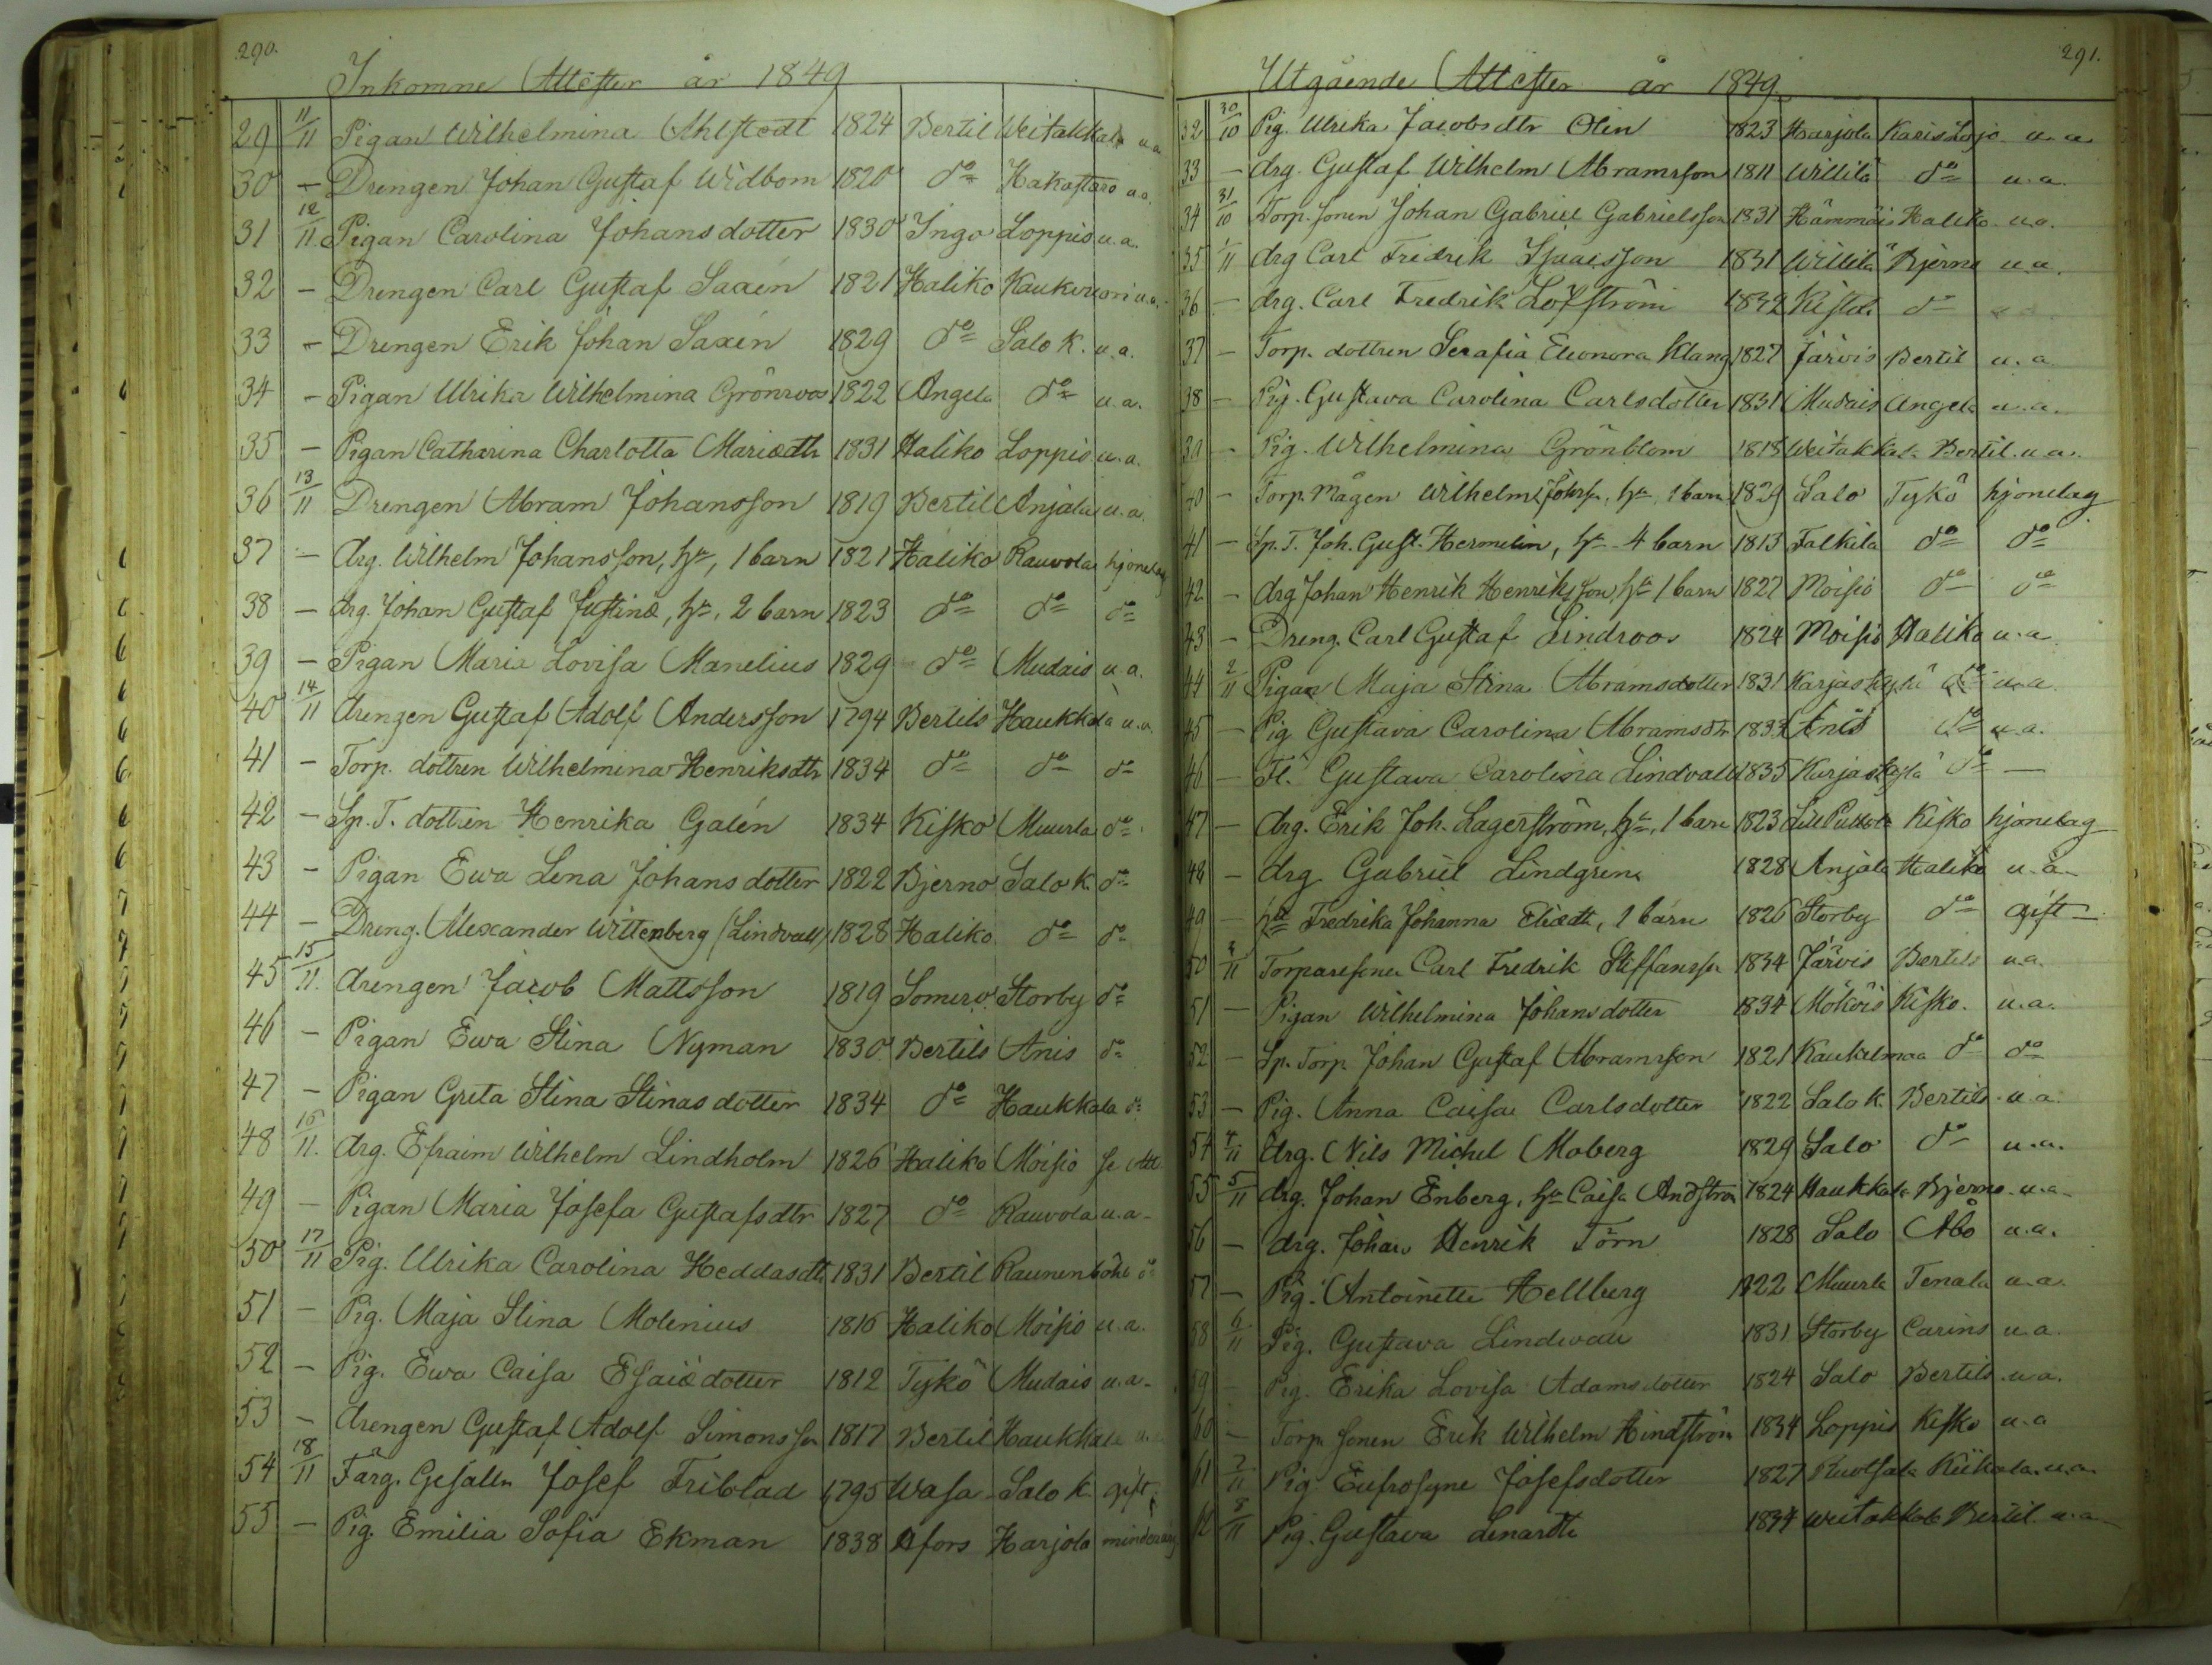 290.
Inkomne Attester år 1849
29 11/11 Pigan Wilhelmina Ahlstedt 1824 Bertil Weitakkala u.a.
30 — Drengen Johan Gustaf Widbom 1820 do Hakastaro u.a.
31 12/11 Pigan Carolina Johansdotter 1830 Ingo Loppis u.a.
32 — Drengen Carl Gustaf Saxén 1821 Haliko Kaukvuori u.a.
33 — Drengen Erik Johan Saxén 1829 do Salo K. u.a.
34 — Pigan Ulrika Wilhelmina Grönroos 1822 Angela do u.a.
35 — Pigan Catharina Charlotta Mariædtr 1831 Haliko Loppis u.a.
36 13/11 Drengen Abram Johansson 1819 Bertil Anjala u.a.
37 — Drg. Wilhelm Johansson, hu, 1 barn 1821 Haliko Rauvola hjonelag
38 — drg. Johan Gustaf Justinæ, hu, 2 barn 1823 do do do
39 — Pigan Maria Lovisa Manelius 1829 do Mudais u.a.
40 14/11 drengen Gustaf Adolf Andersson 1794 Bertils Haukkala u.a.
41 — Torp. dottren Wilhelmina Henriksdtr 1834 do do do
42 — Sp. T. dottren Henrika Galén 1834 Kisko Muurla do
43 — Pigan Ewa Lena Johansdotter 1822 Bjerno Salo K. do
44 — Dreng. Alexander Wittenberg (Lindvall) 1828 Haliko do do
45 15/11. drengen Jacob Mattsson 1819 Somero Storby do
46 — Pigan Ewa Stina Nyman 1830 Bertils Anis do
47 — Pigan Greta Stina Stinasdotter 1834 do Haukkala do
48 16/11. drg. Efraim Wilhelm Lindholm 1826 Haliko Moisio se Att.
49 — Pigan Maria Josefa Gustafsdtr 1827 do Rauvola u.a.
50 17/11 Pig. Ulrika Carolina Heddasdtr 1831 Bertil do
51 — Pig. Maja Stina Molenius 1816 Haliko Moisio u.a.
52 — Pig. Ewa Caisa Esaiædotter 1812 Tykö Mudais u.a.
53 — drengen Gustaf Adolf Simonsson 1817 Bertil Haukkala u.a.
54 18/11 Färg. Gesälln Josef Friblad 1795 Wasa Salo K. gift
55 — Pig. Emilia Sofia Ekman 1838 Hfors Harjola minderårig
291.
Utgående Attester år 1849
32 30/10 Pig. Ulrika Jacobsdtr Olin 1823 Haarjola Karis Lojo u.a.
33 — drg. Gustaf Wilhelm Abramsson 1811 Willilä do u.a.
34 31/10 Torp. sonen Johan Gabriel Gabrielsson 1831 Hämmäis Haliko u.a.
35 1/11 drg Carl Fredrik Isaacsson 1831 Willilä Bjerno u.a.
36 — drg. Carl Fredrik Löfström 1832 do
37 — Torp. dottren Serafia Eleonora Klang 1827 Järvis Bertil u.a.
38 — Pig. Gustava Carolina Carlsdotter 1831 Mudais Angela u.a.
39 — Pig. Wilhelmina Grönblom 1818 Weitakkala Bertil u.a.
40 — Torp. Mågen Wilhelm Johnss., hu, 1 barn 1829 Salo Tykö hjonelag
41 — Sp. T. Joh. Gust. Hermelin, hu 4 barn 1813 Falkila do do
42 — drg Johan Henrik Henriksson, hu 1 barn 1827 Moisio do do
43 — Dreng. Carl Gustaf Lindroos 1824 Moisio Haliko u.a.
44 2/11 Pigan Maja Stina Abramsdotter 1831 Karjaskylä do u.a.
45 — Pig Gustava Carolina Abramsdtr 1833 Anis do u.a.
46 — Fl. Gustava Carolina Lindvall 1835 Karjaskylä do —
47 — drg. Erik Joh. Lagerström, hu, 1 barn 1823 Kisko hjonelag
48 — drg Gabriel Lindgren 1828 Anjala Haliko u.a.
49 — hu Fredrika Johanna Eliædtr, 1 barn 1826 Storby do gift
50 3/11 Torparesonen Carl Fredrik Stiffansson 1834 Järvis Bertils u.a.
51 — Pigan Wilhelmina Johansdotter 1834 Kisko. u.a.
52 — Sp. Torp Johan Gustaf Abramsson 1821 Kaukelmaa do do
53 — Pig. Anna Caisa Carlsdotter 1822 Salo K. Bertils u.a.
54 4/11 drg. Nils Michel Moberg 1829 Salo do u.a.
55 5/11 drg. Johan Enberg, hu Caisa Andström 1824 Haukkala Bjerno u.a.
56 — drg. Johan Henrik Törn 1828 Salo Åbo u.a.
57 — Pig. Antoinette Hellberg 1822 Muurla Tenala u.a.
58 6/11 Pig. Gustava Lindwall 1831 Storby Carins u.a.
59 — Pig. Erika Lovisa Adamsdotter 1824 Salo Bertils u.a.
60 — Torp. sonen Erik Wilhelm Hindström 1834 Loppis Kisko u.a
61 7/11 Pig. Eufrosyne Josefsdotter 1827 Ruotsala Kiikala u.a.
62 8/11 Pig. Gustava Lenardtr 1834 Weitakkala Bertil u.a.